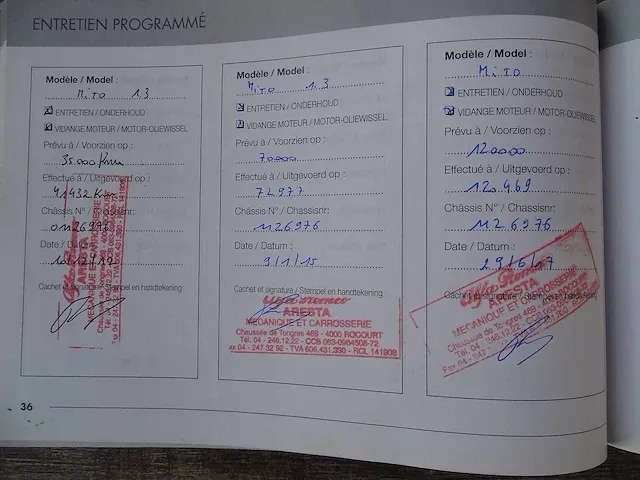 ENTRETIEN PROGRAMMÉ
Modèle / Model :
MiTO 1.3
ENTRETIEN / ONDERHOUD
VIDANGE MOTEUR / MOTOR-OLIEWISSEL
Prévu à / Voorzien op :
35.000 Km
Effectué à / Uitgevoerd op :
41432 Km
Châssis N° / Chassisnr:
0M26976
Date / Datum :
Cachet et signature / Stempel en handtekening
Alfa Romeo
ARESTA
MECANIQUE ET CARROSSERIE
Modèle / Model :
MiTO 1.3
ENTRETIEN / ONDERHOUD
VIDANGE MOTEUR / MOTOR-OLIEWISSEL
Prévu à / Voorzien op :
70000
Effectué à / Uitgevoerd op :
72977
Châssis N° / Chassisnr:
M26976
Date / Datum :
9/1/15
Cachet et signature / Stempel en handtekening
Alfa Romeo
ARESTA
MECANIQUE ET CARROSSERIE
Chaussée de Tongres 469 - 4000 ROCOURT
Tél. 04 - 246.12.22 - CCB 063-0964508-72
ax 04 - 247 32 92 - TVA 606.431.390 - RCL 141908
Modèle / Model :
MiTO
ENTRETIEN / ONDERHOUD
VIDANGE MOTEUR / MOTOR-OLIEWISSEL
Prévu à / Voorzien op :
120000
Effectué à / Uitgevoerd op :
120.469
Châssis N° / Chassisnr:
M26976
Date / Datum :
29/6/17
Cachet et signature / Stempel en handtekening
Alfa Romeo
ARESTA
MECANIQUE ET CARROSSERIE
Chaussée de Tongres 469
Tél. 04 - 246.12.22
Fax 04 - 247
36